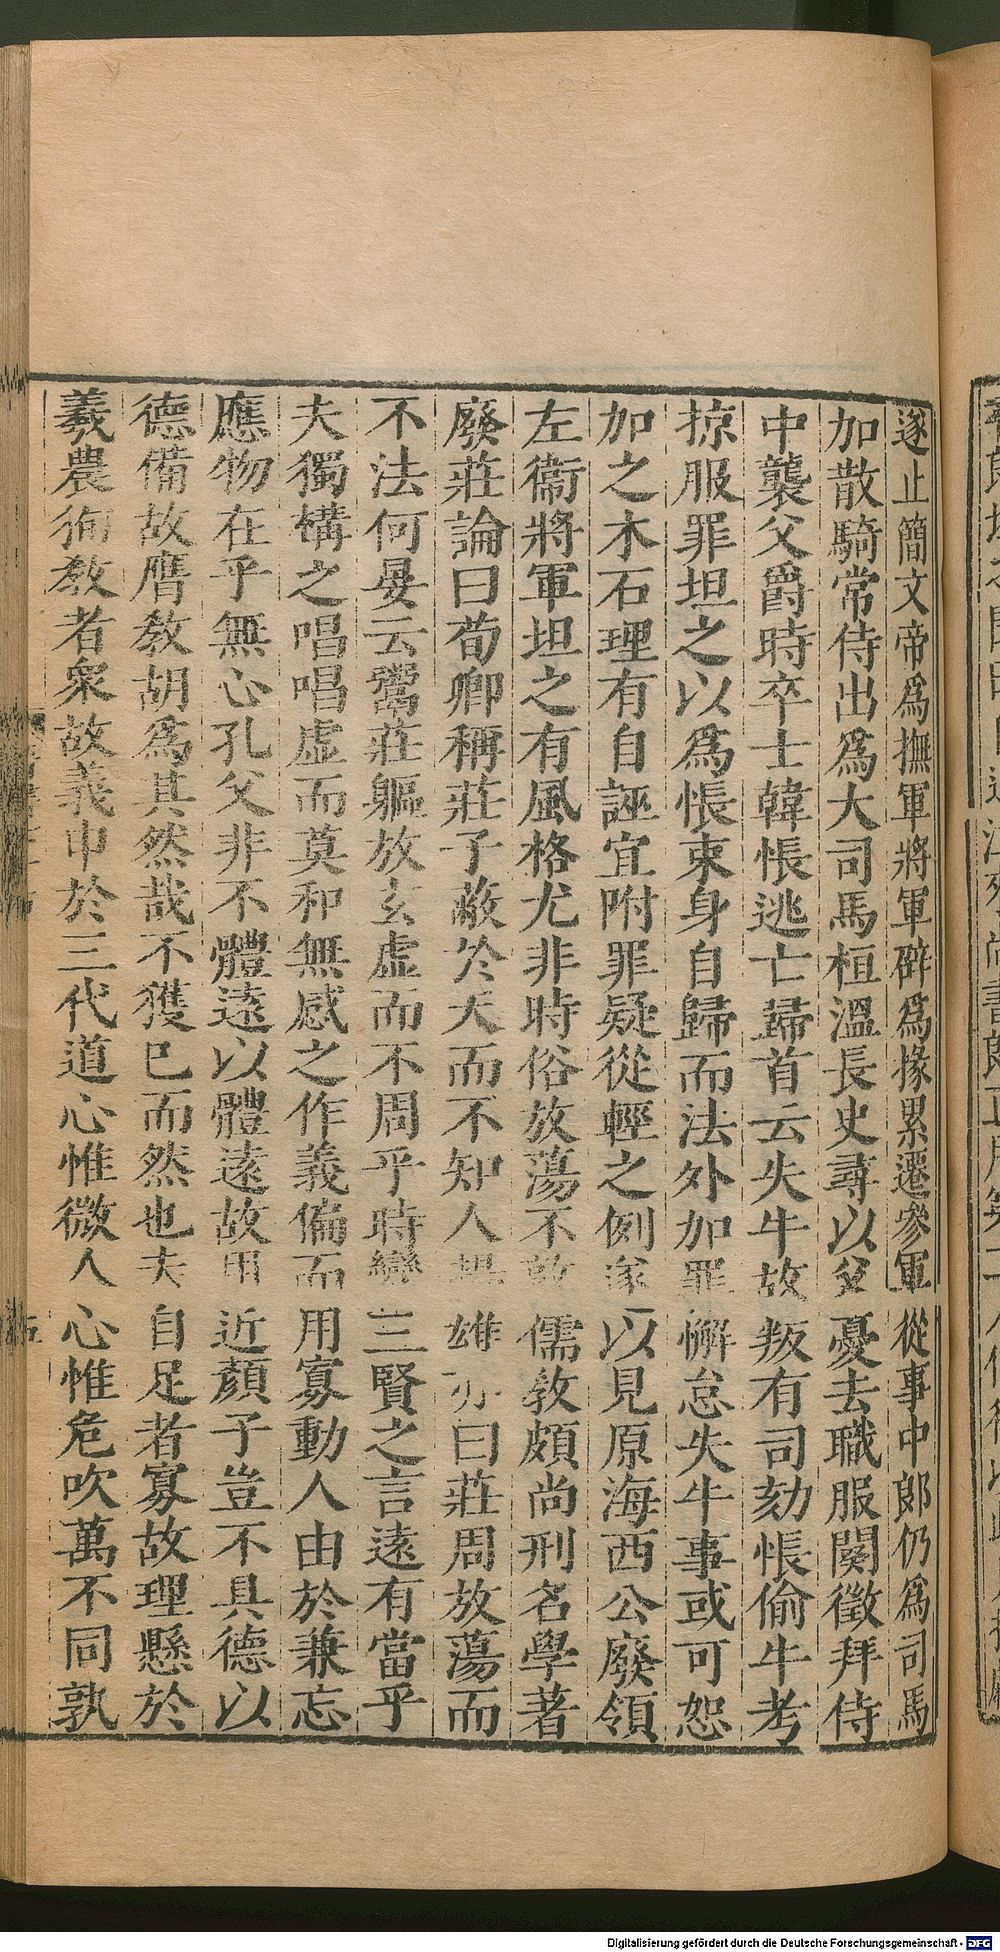 遂止簡文帝爲撫軍將軍辟爲掾累遷參軍從事中郎仍爲司馬
加散騎常侍出爲大司馬桓溫長史尋以父憂去職服闋徵拜侍
中襲父爵時卒士韓悵逃亡歸首云失牛故叛有司劾悵偷牛考
掠服罪坦之以爲悵束身自歸而法外加罪懈怠失牛事或可恕
加之木石理有自誣宜附罪疑從輕之例遂以見原海西公廢領
左衞將軍坦之有風格尤非時俗放蕩不敦儒敎頗尚刑名學著
廢莊論曰荀卿稱莊子蔽於天而不知人揚雄亦曰莊周放蕩而
不法何晏云鬻莊軀放玄虛而不周乎時變三賢之言遠有當乎
夫獨構之唱唱虛而莫和無感之作義偏而用寡動人由於兼忘
應物在乎無心孔父非不體遠以體遠故用近顏子豈不具德以
德備故膺敎胡爲其然哉不獲已而然也夫自足者寡故理懸於
羲農徇敎者衆故義申於三代道心惟微人心惟危吹萬不同孰
五
Digitalisierung gefördert durch die Deutsche Forschungsgemeinschaft - DFG